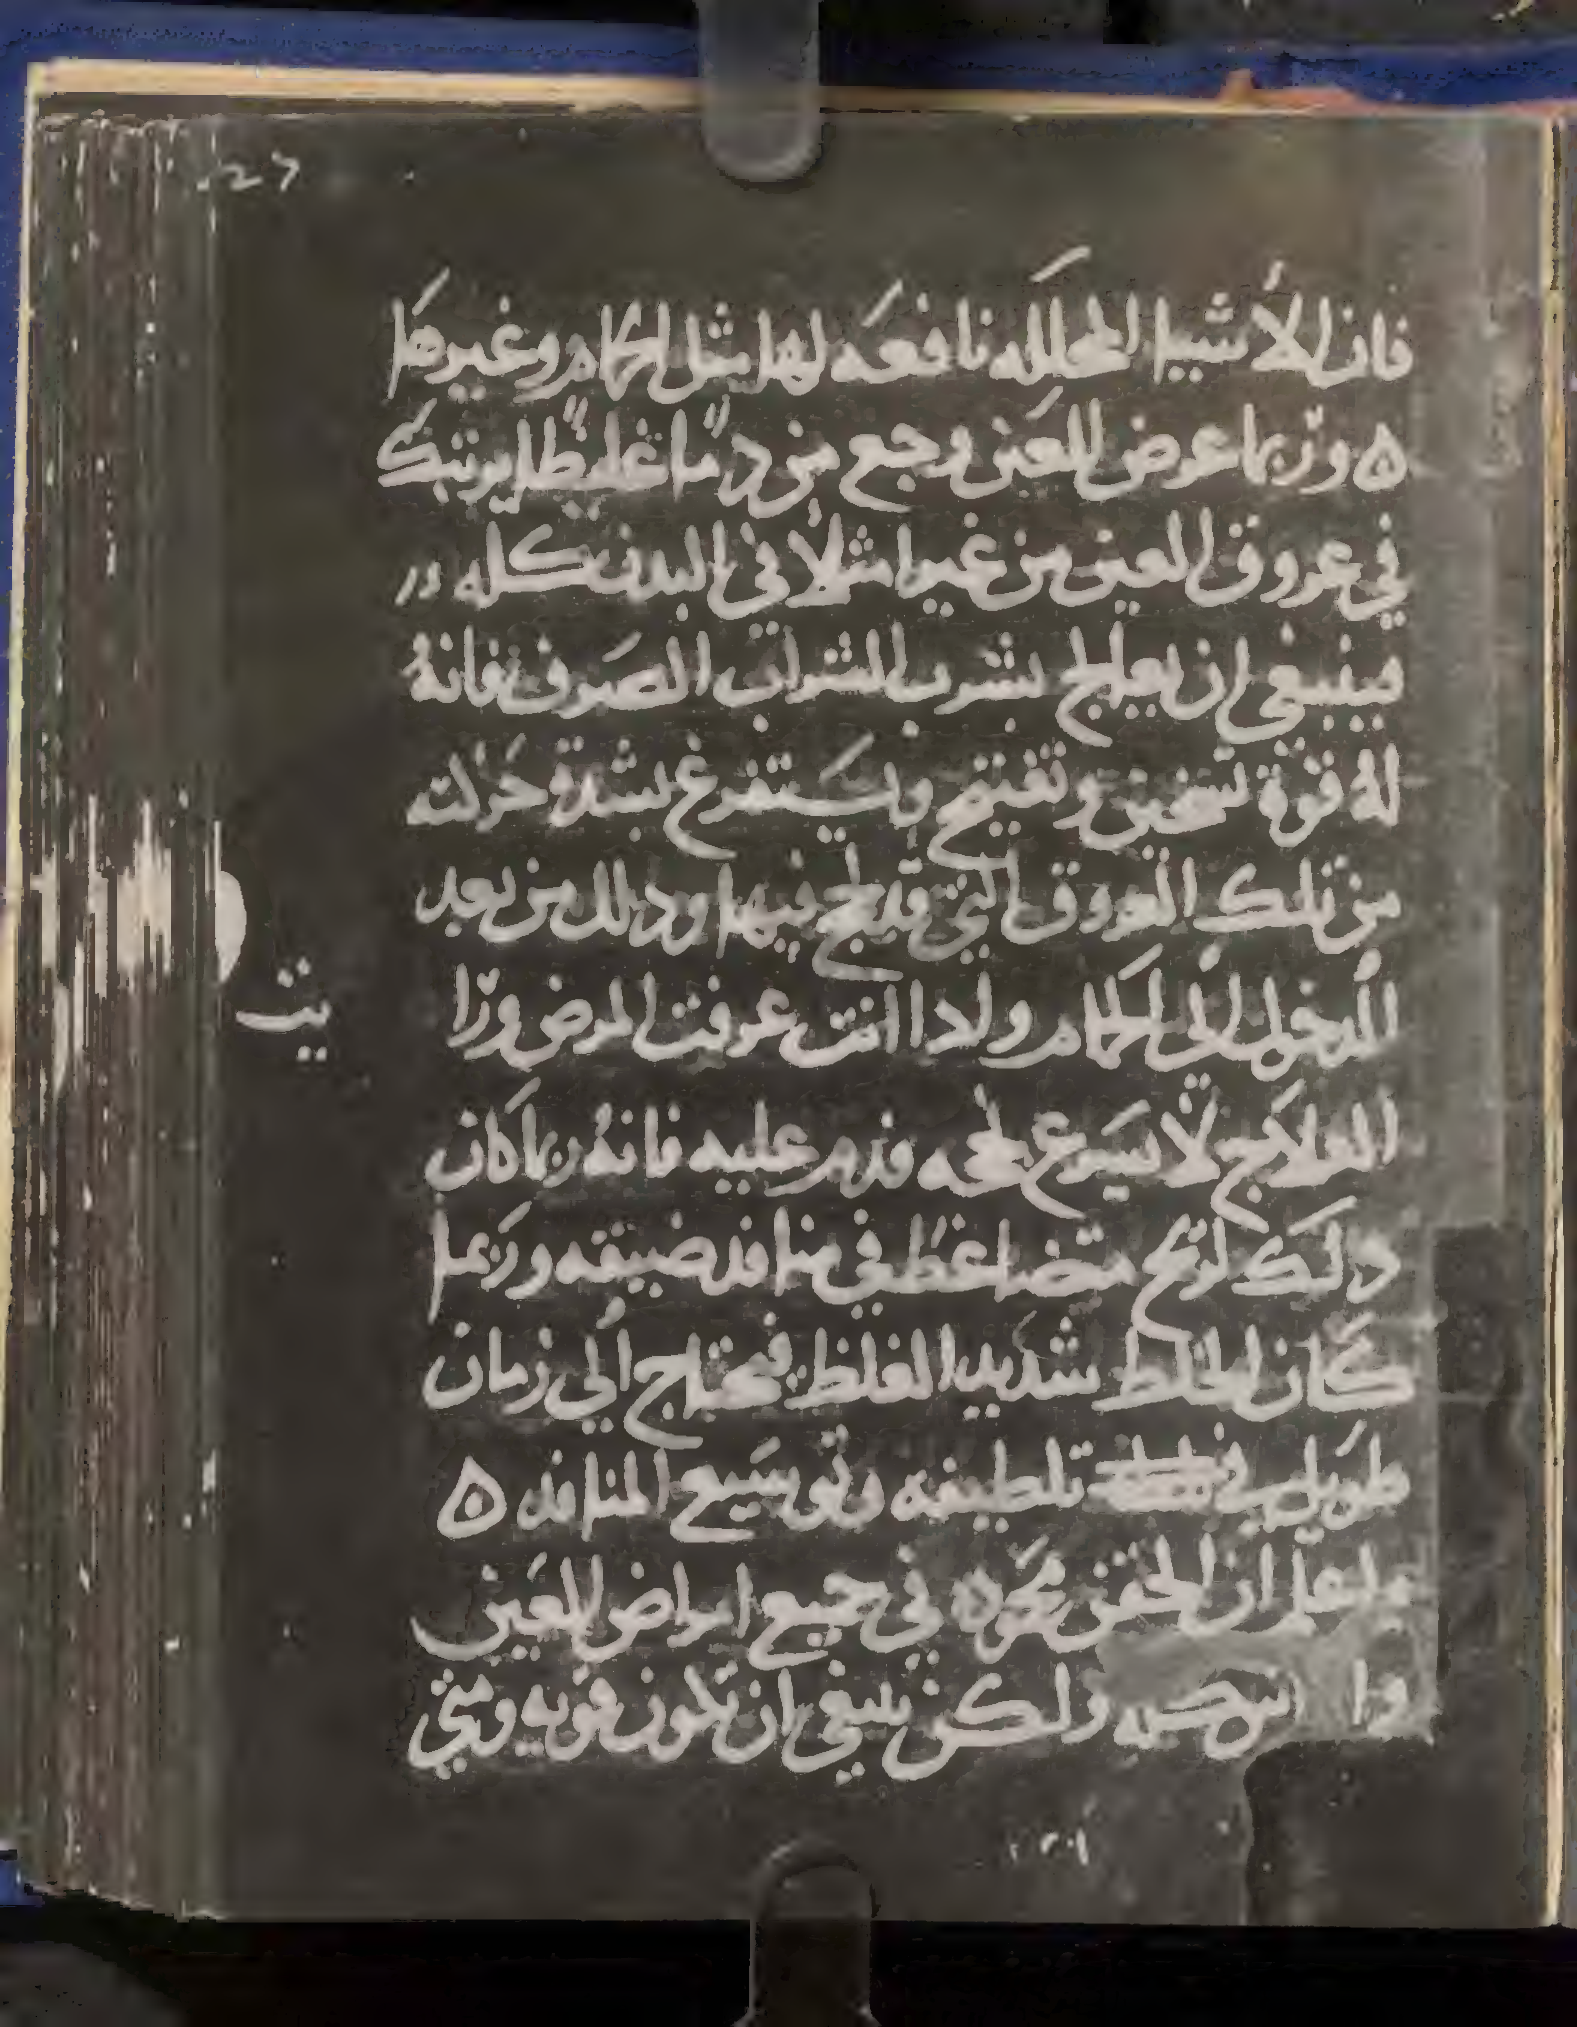 فان الأشيا المحلله نافعه لها مثل الحمام وغيرها
ه وربما عرض للعين وجع من دم ما غليظ يرتبك
في عروق العين من غير امتلأ في البدن كله
فينبغي ان يعالج بشرب الشراب الصرف فانهُ
لهُ قوة تسخين وتفتيح ويستفرغ بشدة حركته
من تلك العروق التي قد لحج فيها وذلك من بعد
الدخول الى الحمام واذا انت عرفت المرض ورا
العلاج لا يسرع نجحه فدم عليه فانهُ ربما كان
ذلك لريح متضاغط في منافذ ضيقه وربما
كان الخلط شديد الغلظ فيحتاج الي زمان
طويل في تلطيفه وتوسيع المنافذ ه
واعلم ان الحقن محموده في جميع امراض العين
وا ولكن ينبغي ان تكون قويه ومتي
يث